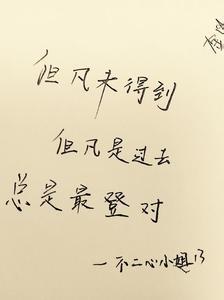 但凡未得到
但凡是过去
总是最登对
一不二心小姐13